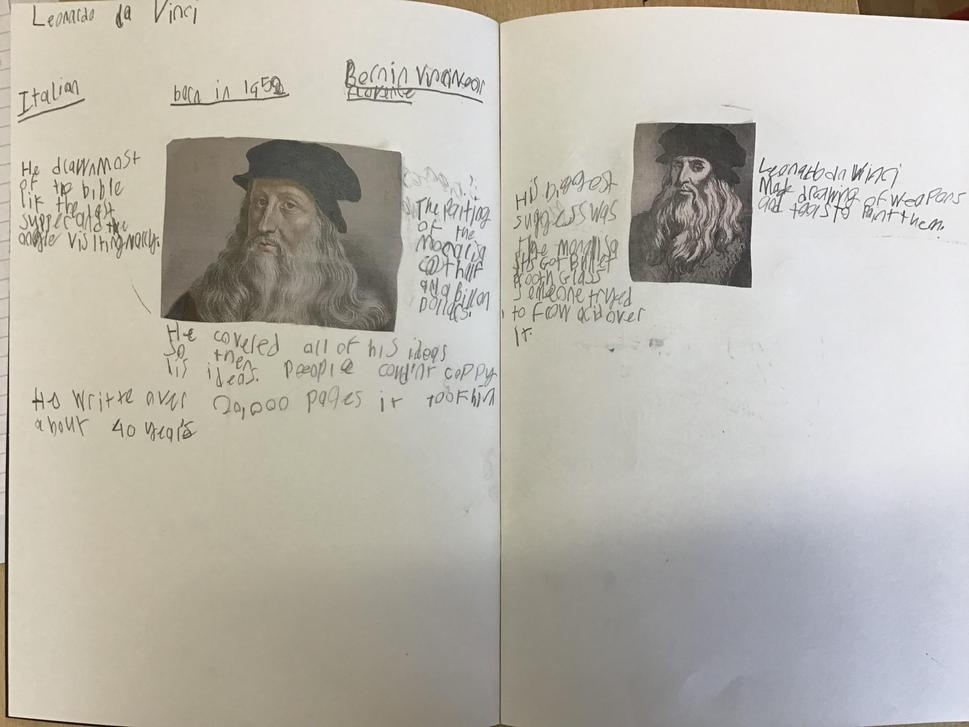 Leonardo da Vinci
Italian
born in 1952
Born in Vinci near
florence
He drawn most
of the bible
lik the last
supper and the
angle visiting marry.
The painting
of the
monarlisa
cost half
and a billon
Dollars.
He covered all of his ideas
so then
his ideas. Peeople couldnt coppy
He writte over 20,000 pages it took him
about 40 years
His biggest
suggcess was
the monarlisa
its got bullet
proof Glass
someone tryed
to frow acid over
it.
Leonardo da Winci
Made drawing of weapons
and tears to paint them.